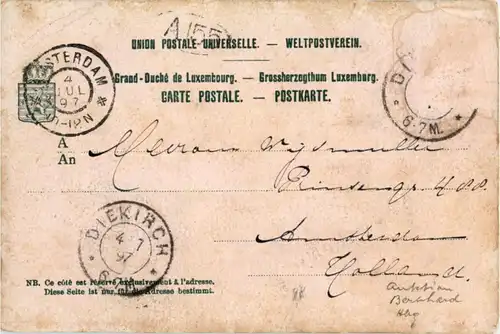 A 55
UNION POSTALE UNIVERSELLE. — WELTPOSTVEREIN.
AMSTERDAM
4
JUL
97
10-12N
Grand-Duché de Luxembourg. — Grossherzogthum Luxemburg.
CARTE POSTALE. — POSTKARTE.
6-7M.
A
An
Mevrouw Wijsmuller
Prinsengr 488.
Amsterdam
Holland.
DIEKIRCH
4 7
97
NB. Ce côté est réservé exclusivement à l'adresse.
Diese Seite ist nur für die Adresse bestimmt.
Auktion
Bernhard